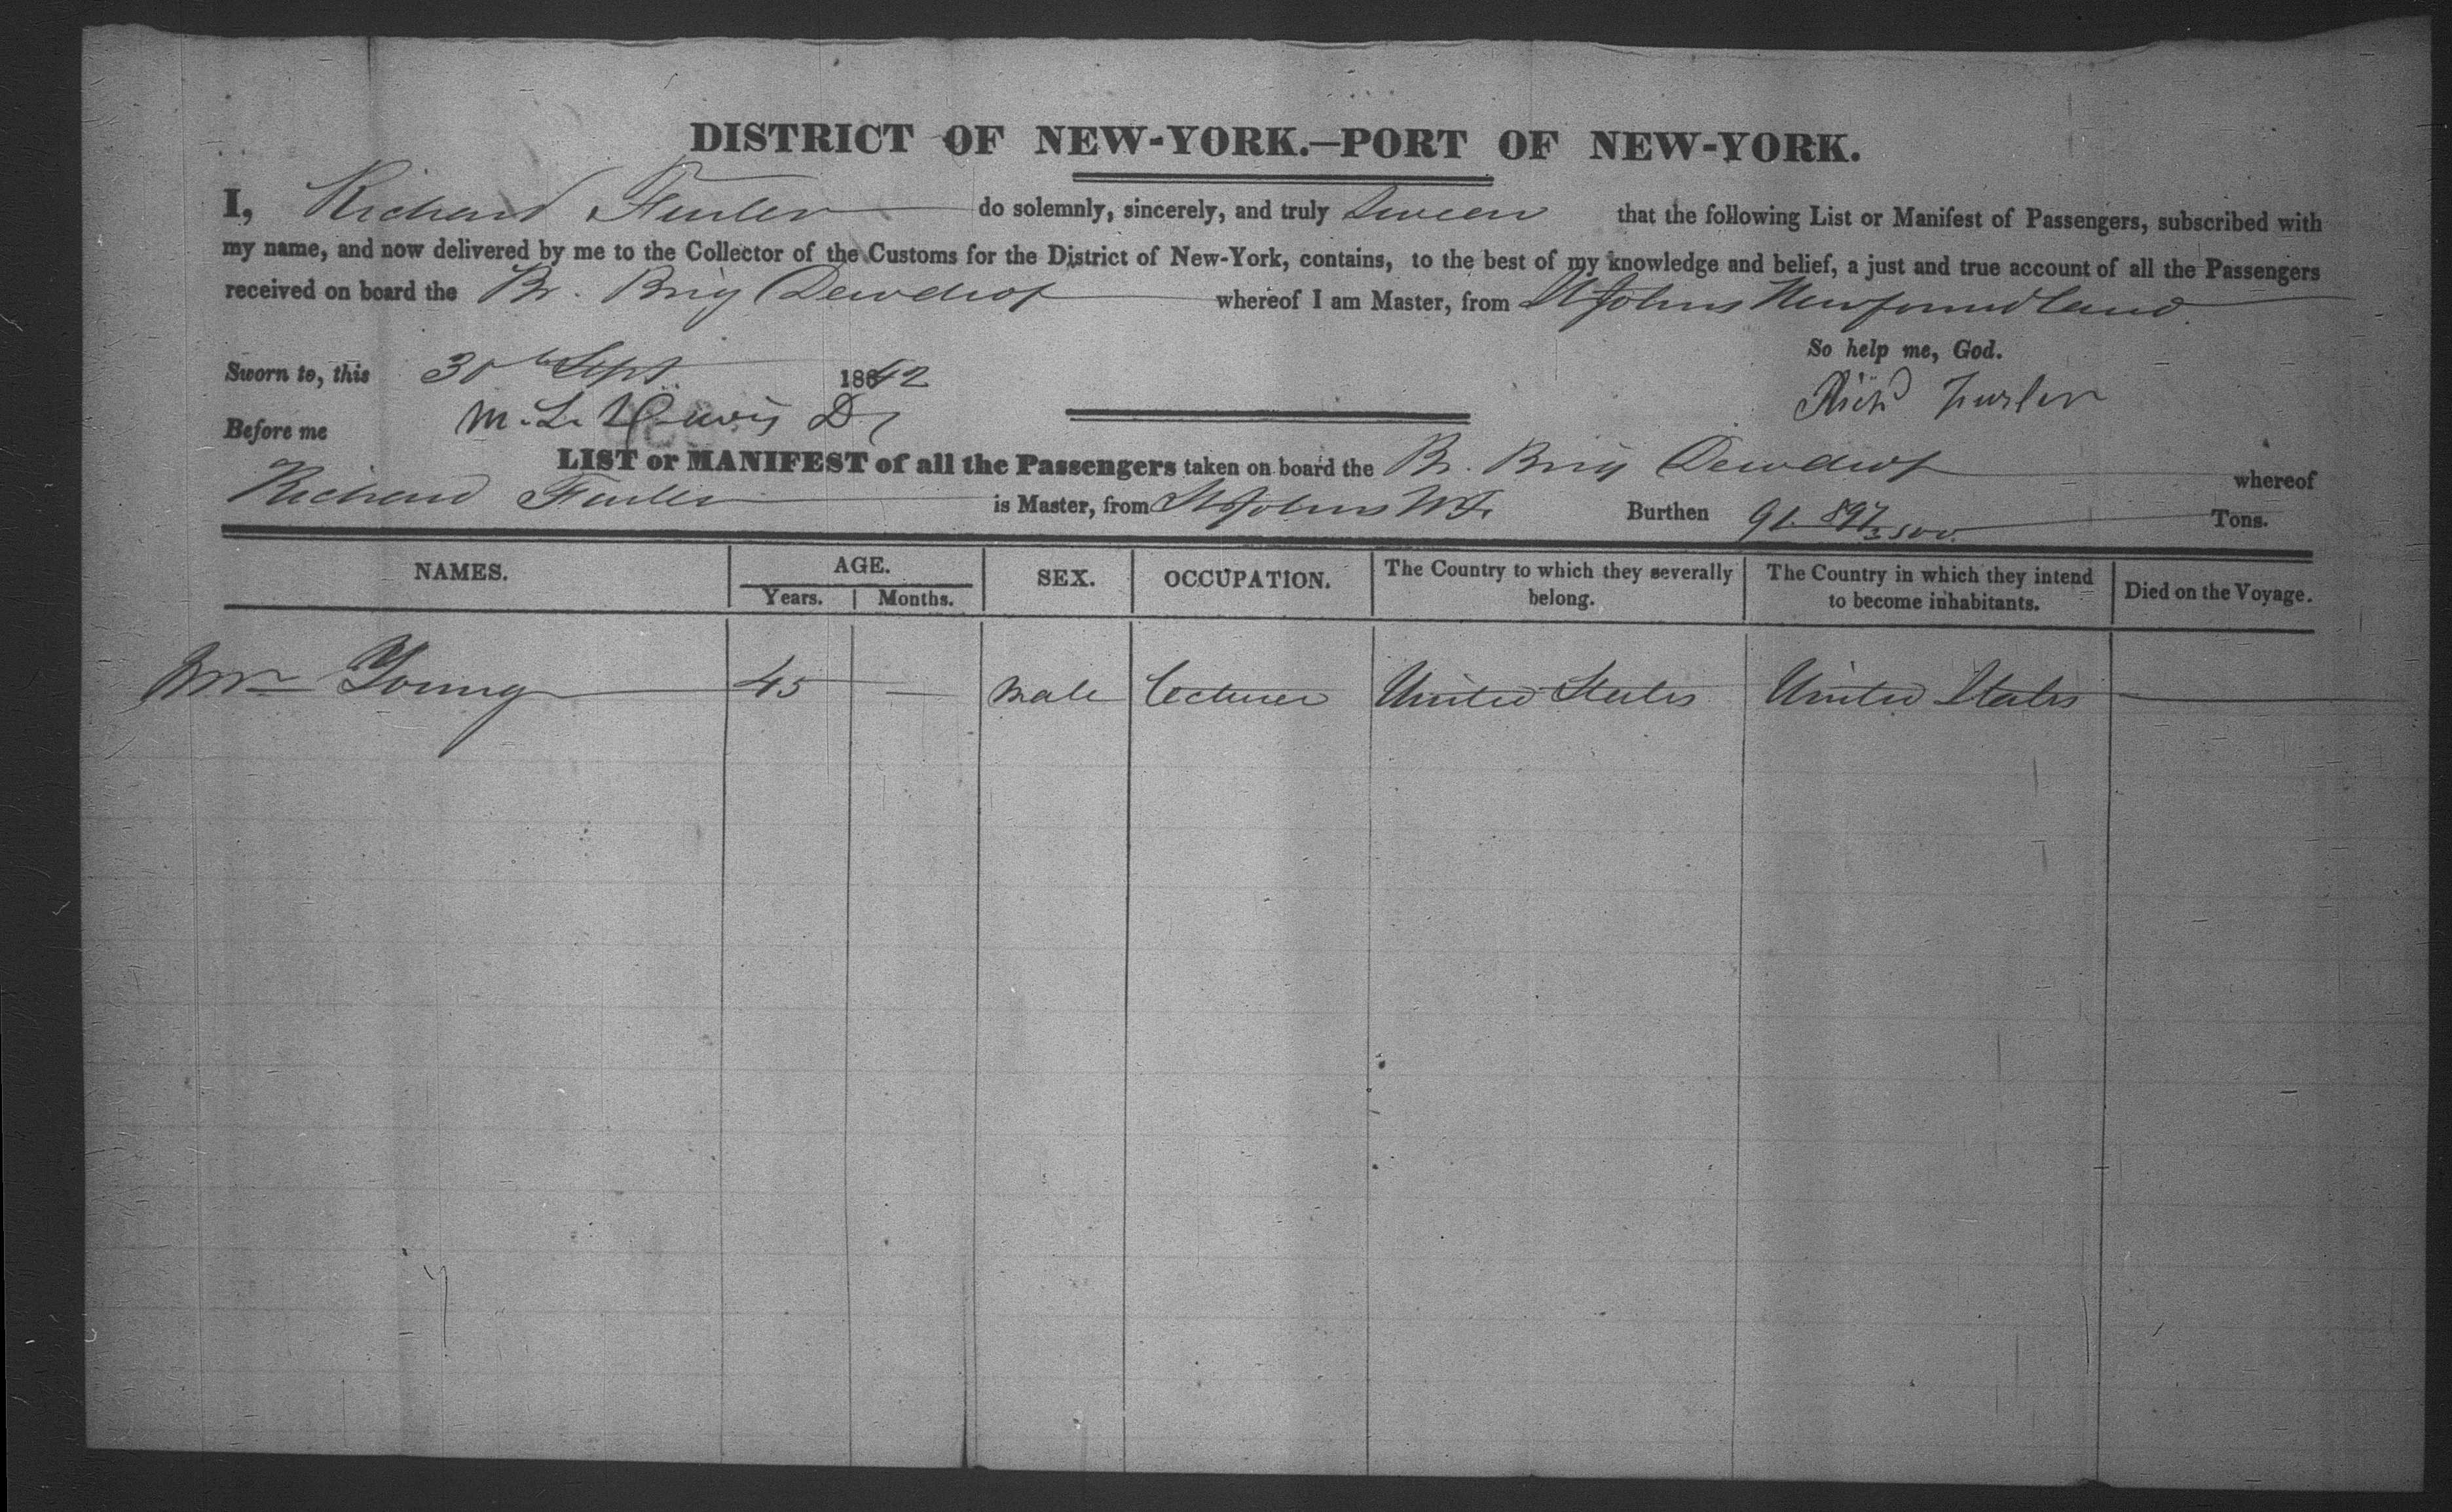 DISTRICT OF NEW-YORK.—PORT OF NEW-YORK.
I, Richard Furler do solemnly, sincerely, and truly Swear that the following List or Manifest of Passengers, subscribed with
my name, and now delivered by me to the Collector of the Customs for the District of New-York, contains, to the best of my knowledge and belief, a just and true account of all the Passengers
received on board the Br. Brig Dewdrop whereof I am Master, from St Johns Newfoundland
So help me, God.
Sworn to, this 30th Sept 1842
Richd Furler
Before me M. L. Davis D
LIST or MANIFEST of all the Passengers taken on board the Br. Brig Dewdrop whereof
Richard Furler is Master, from St Johns NF. Burthen 91 Tons.
NAMES. AGE. SEX. OCCUPATION. The Country to which they severally belong. The Country in which they intend to become inhabitants. Died on the Voyage.
Years. Months.
Mr Young 45 — male lecturer United States United States